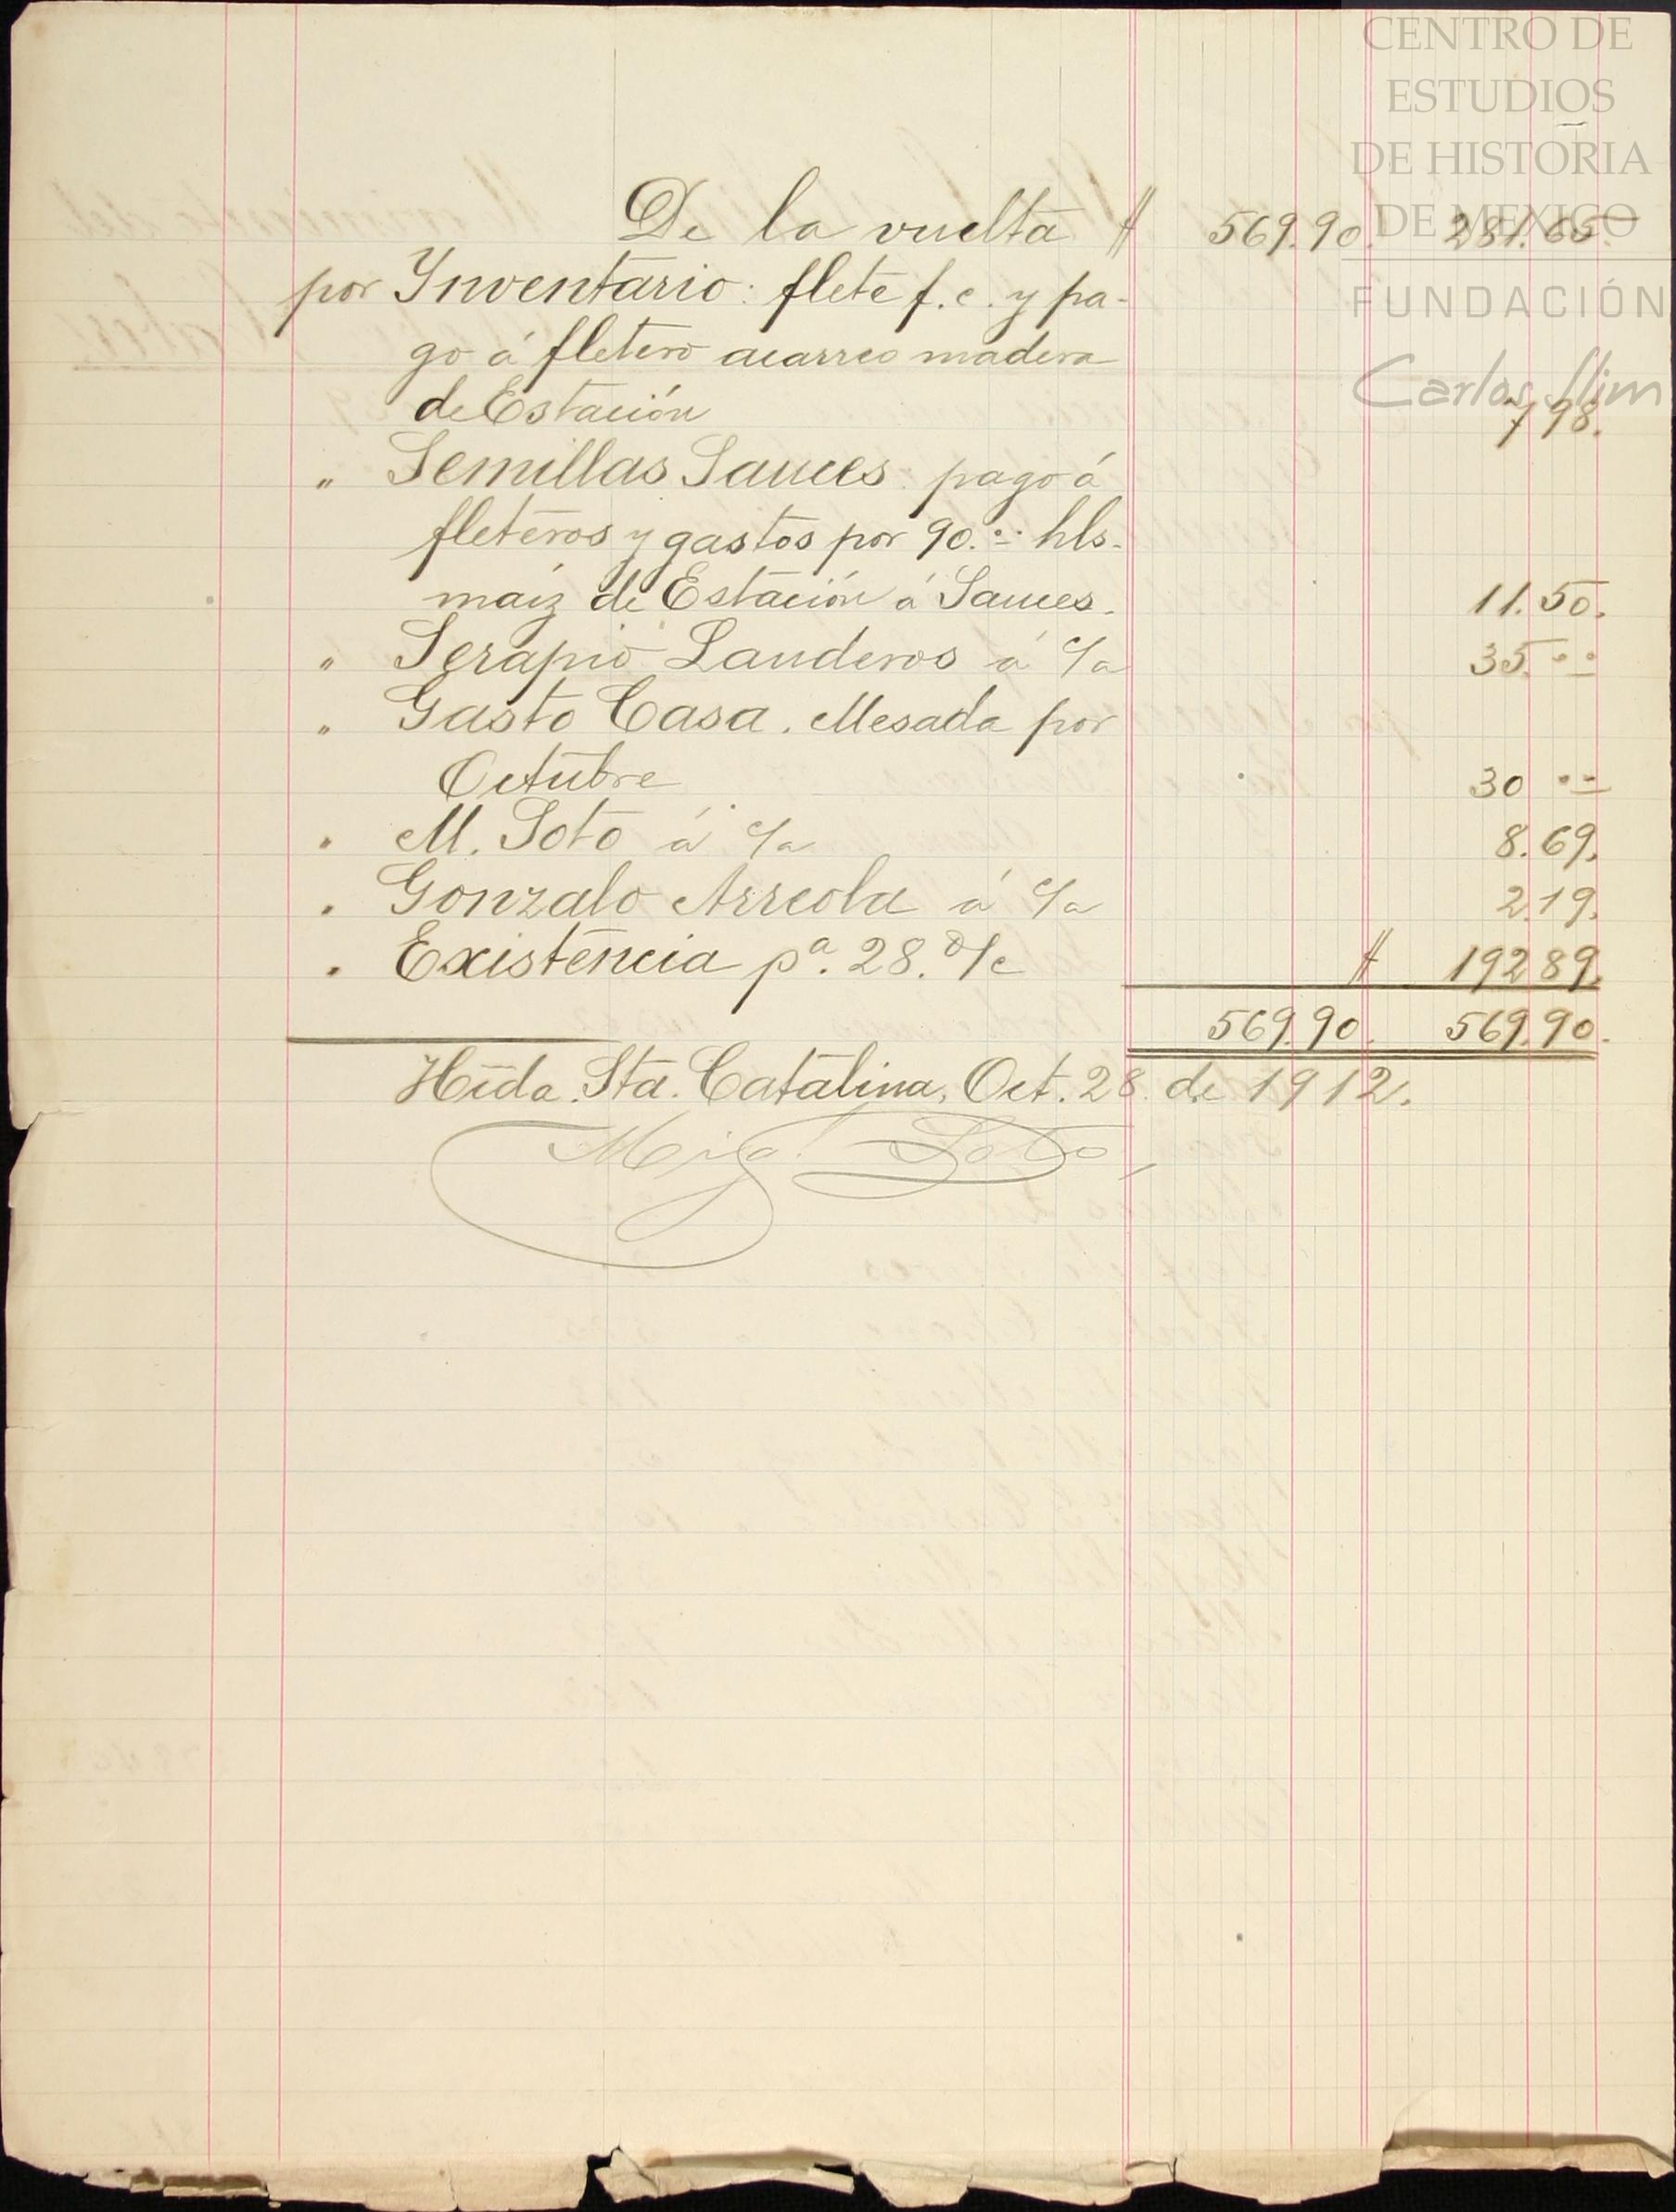 CENTRO DE
ESTUDIOS
DE HISTORIA
DE MEXICO
FUNDACIÓN
Carlos Slim
De la vuelta $ 569.90. 281.65.
por Inventario: flete f.c. y pa-
go á fletero acarreo madera
de Estación 7 98.
" Semillas Sauces: pago á
fleteros y gastos por 90.·· hls.
maíz de Estación á Sauces. 11.50.
" Serapio Landeros á c/a 35.··
" Gasto Casa. Mesada por
Octubre 30 ··
" M. Soto á c/a 8.69.
" Gonzalo Arreola á c/a 2.19.
" Existencia pa. 28. d/c $ 192 89.
569.90. 569.90.
Hcda. Sta. Catalina, Oct. 28 de 1912.
Migl. Soto